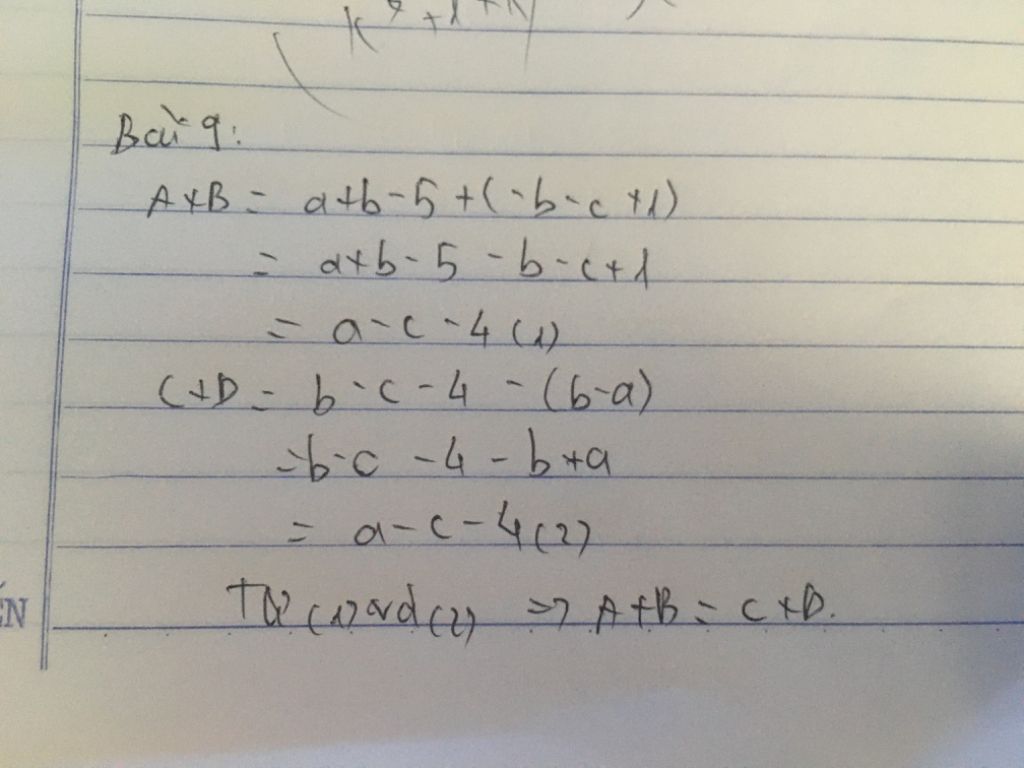 Bài 9:
A+B = a+b-5+(-b-c+1)
= a+b-5-b-c+1
= a-c-4 (1)
C+D = b-c-4-(b-a)
=b-c-4-b+a
= a-c-4 (2)
Từ (1) and (2) => A+B = C+D.